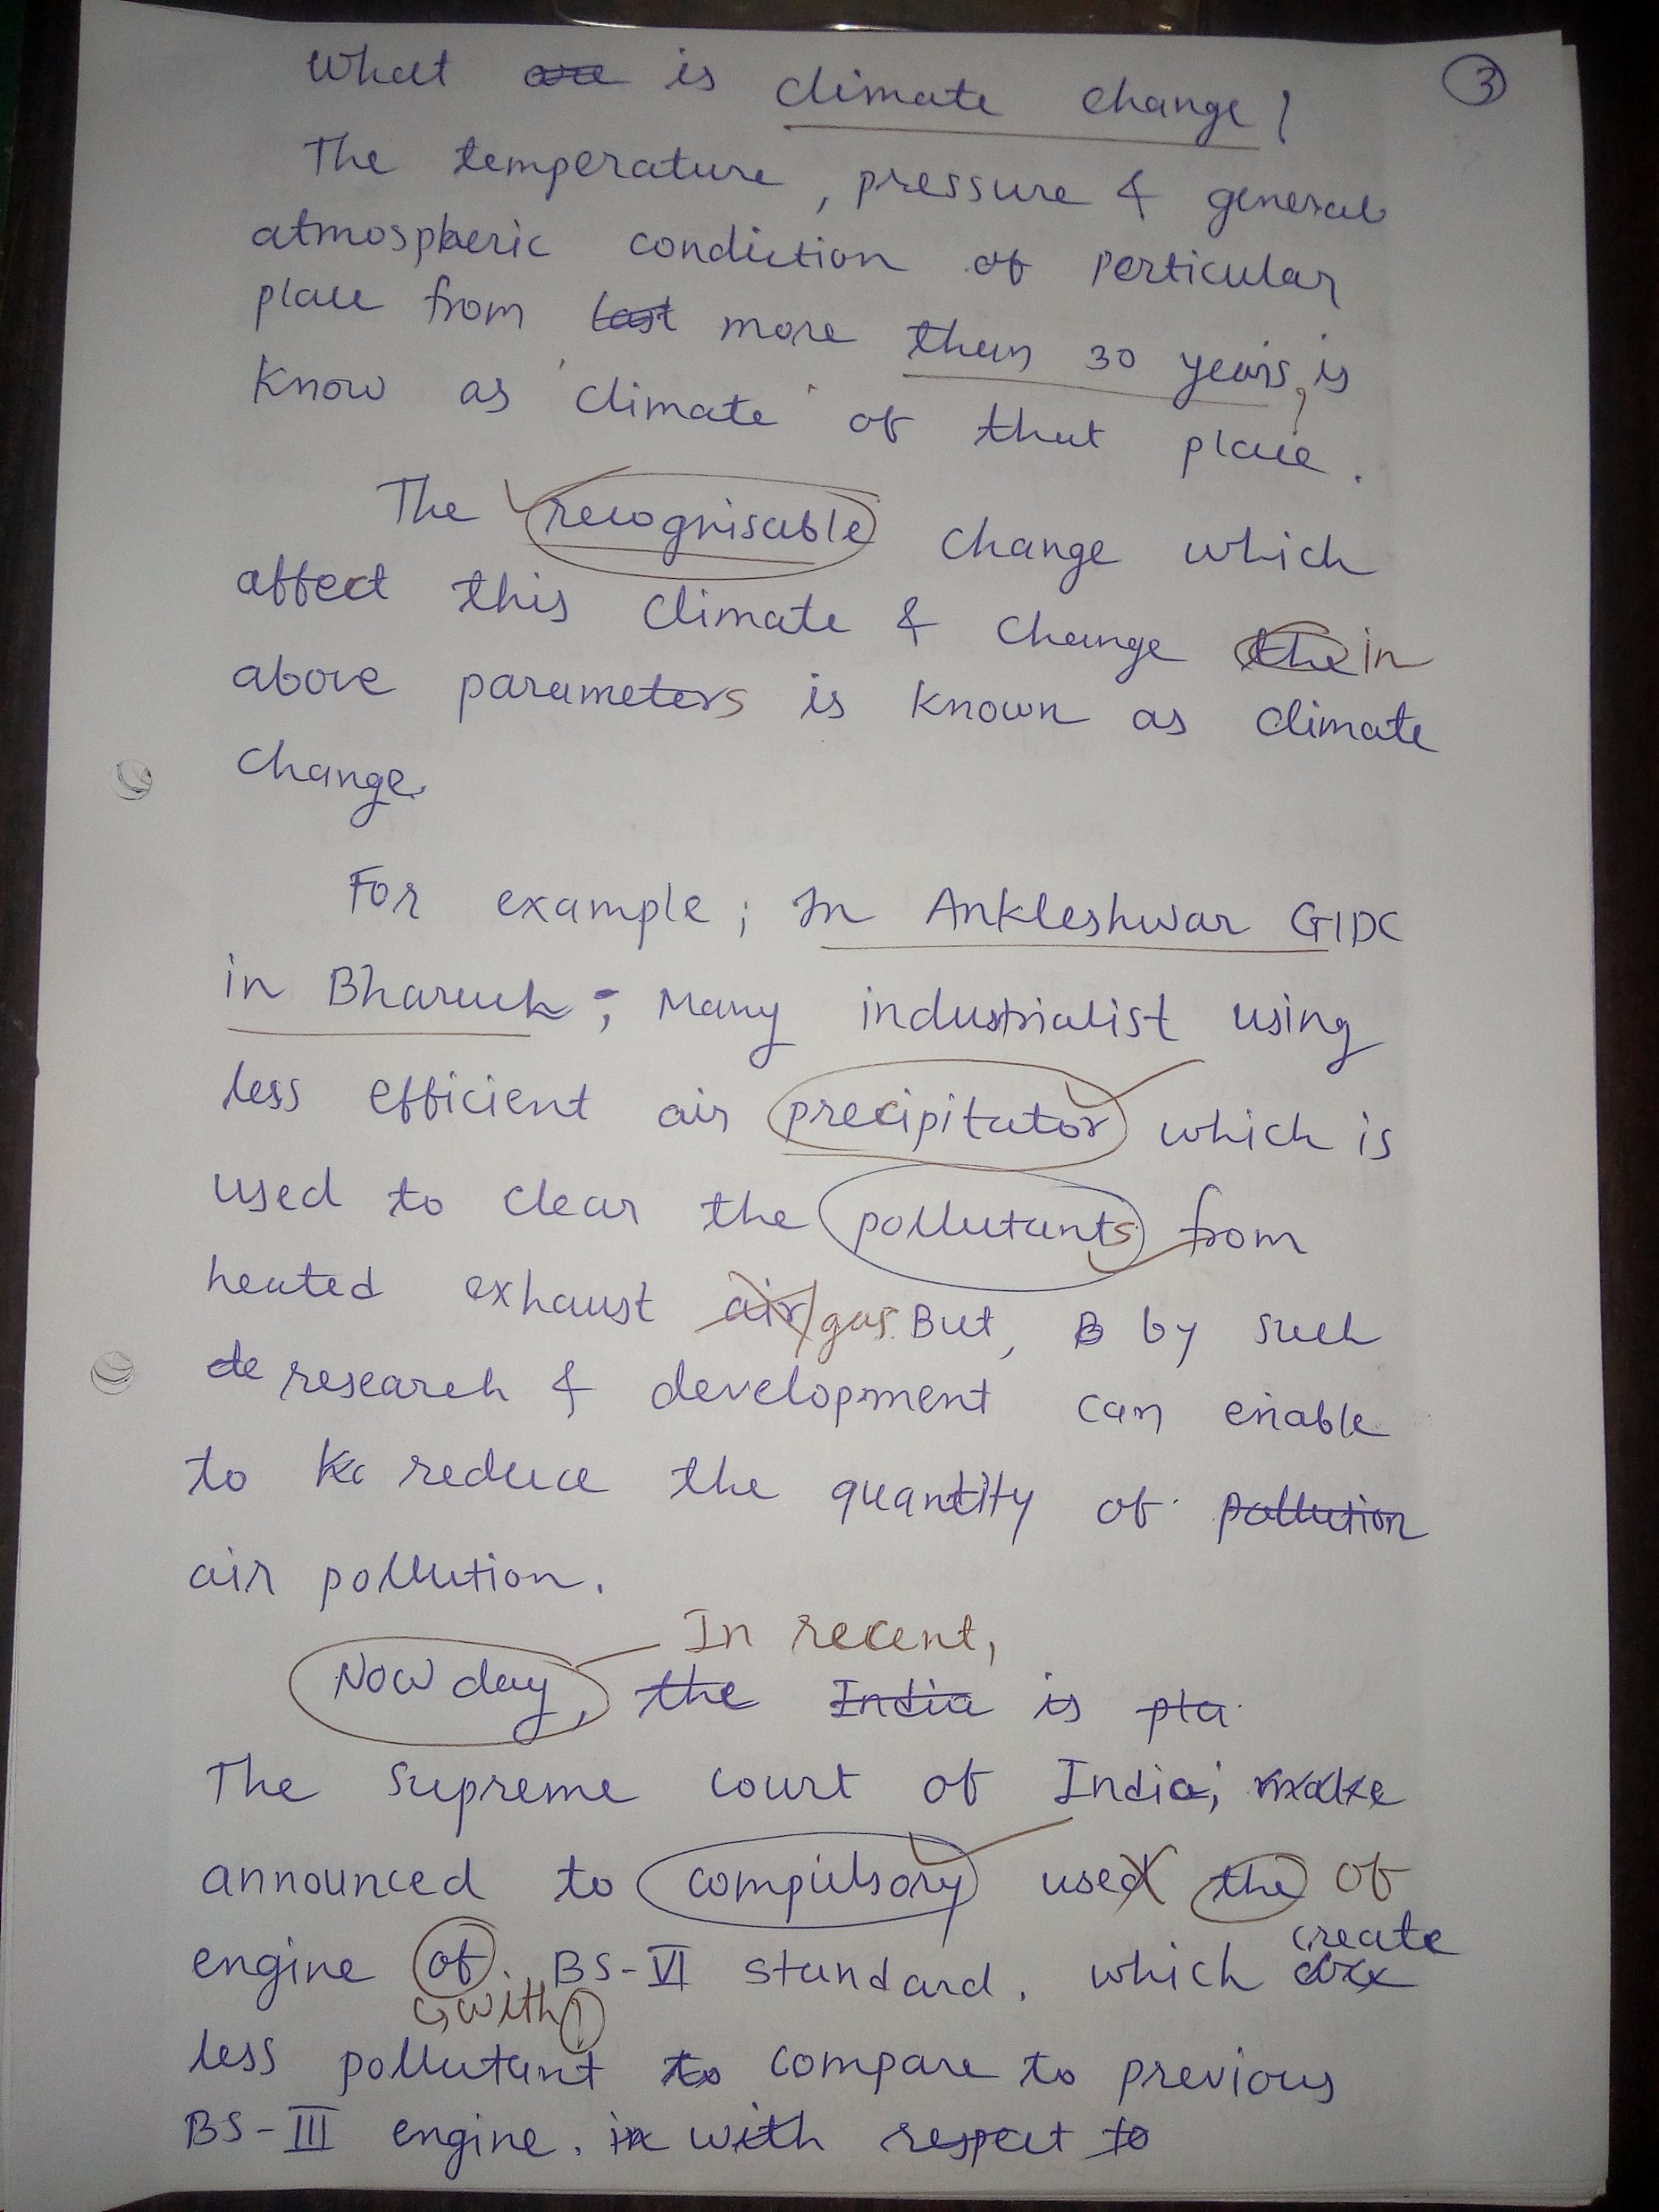 What are is climate change? ③
The temperature, pressure & general
atmospheric condiction of perticular
place from last more than 30 years, is
know as 'climate' of that place.
The recognisable change which
affect this climate & change the in
above parameters is known as climate
change.
For example; In Ankleshwar GIDC
in Bharuch; Many industrialist using
less efficient air precipitator which is
used to clear the pollutants from
heated exhaust air/gas. But, B by such
de research & development can enable
to Kc reduce the quantity of pollution
air pollution.
In recent,
Now day, the India is pla
The Supreme court of India; make
announced to compulsory used the of
create
engine of BS-VI standard. which
with
less pollutant to compare to previous
BS-III engine. in with respect to